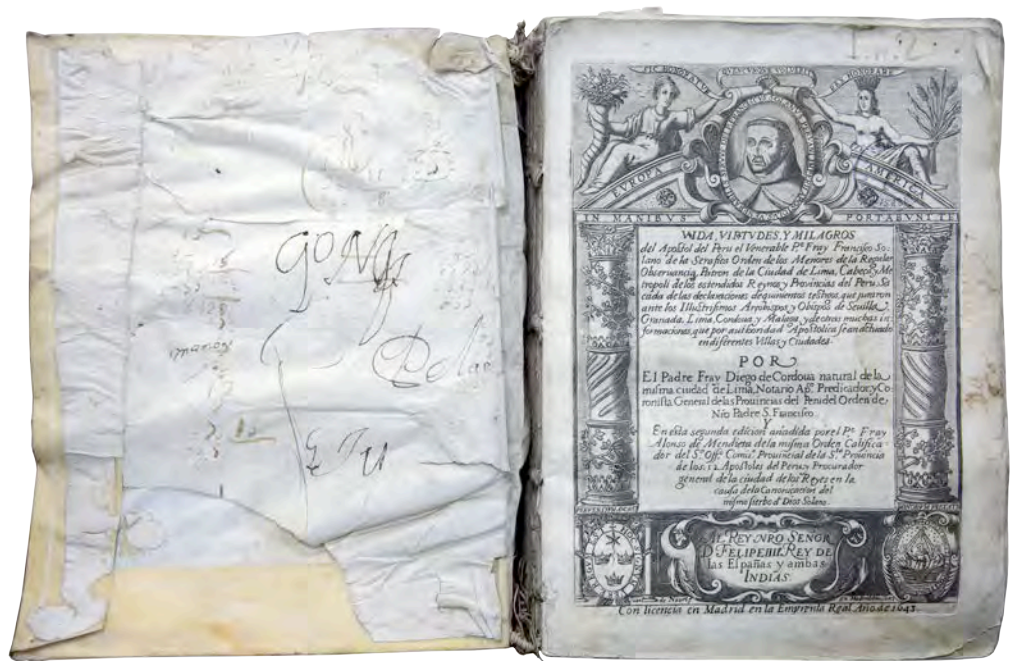 manos
SIC HONORATVR
HONORARE
EVROPA
AMERICA
IN MANIBVS PORTABVNT TE
VIDA, VIRTVDES, Y MILAGROS
del Apostol del Peru el Venerable Pe. Fray Francisco So-
lano de la Serafica Orden de los Menores de la Regular
Obseruancia, Patron de la Ciudad de Lima, Cabeça y Me-
tropoli de los estendidos Reynos y Prouincias del Peru. Sa-
cada de las declaraciones de quinientos testigos, que juraron
ante los Illustrisimos Arçobispos y Obispos de Seuilla,
Granada, Lima, Cordoua, y Malaga, y de otras muchas in-
formaciones, que por authoridad Apostolica se an actuado
en diferentes Villas y Ciudades.
POR
El Padre Fray Diego de Cordoua natural de la
misma ciudad de Lima, Notario Apo. Predicador, y Co-
ronista General de las Prouincias del Peru del Orden de
Nro Padre S. Francisco.
Y
En esta segunda edicion añadida por el Pe. Fray
Alonso de Mendieta de la misma Orden, Califica-
dor del So. Offo. Comiso. Prouincial de la Sta. Prouincia
de los 12 Apostoles del Peru, y Procurador
general de la ciudad de los Reyes en la
causa de la Canonizacion del
mismo sierbo d' Dios Solano.
AL REY NRO SEÑOR
D. FELIPE IIII. REY DE
las Españas y ambas
INDIAS
Con licencia en Madrid en la Emprenta Real Año de 1643